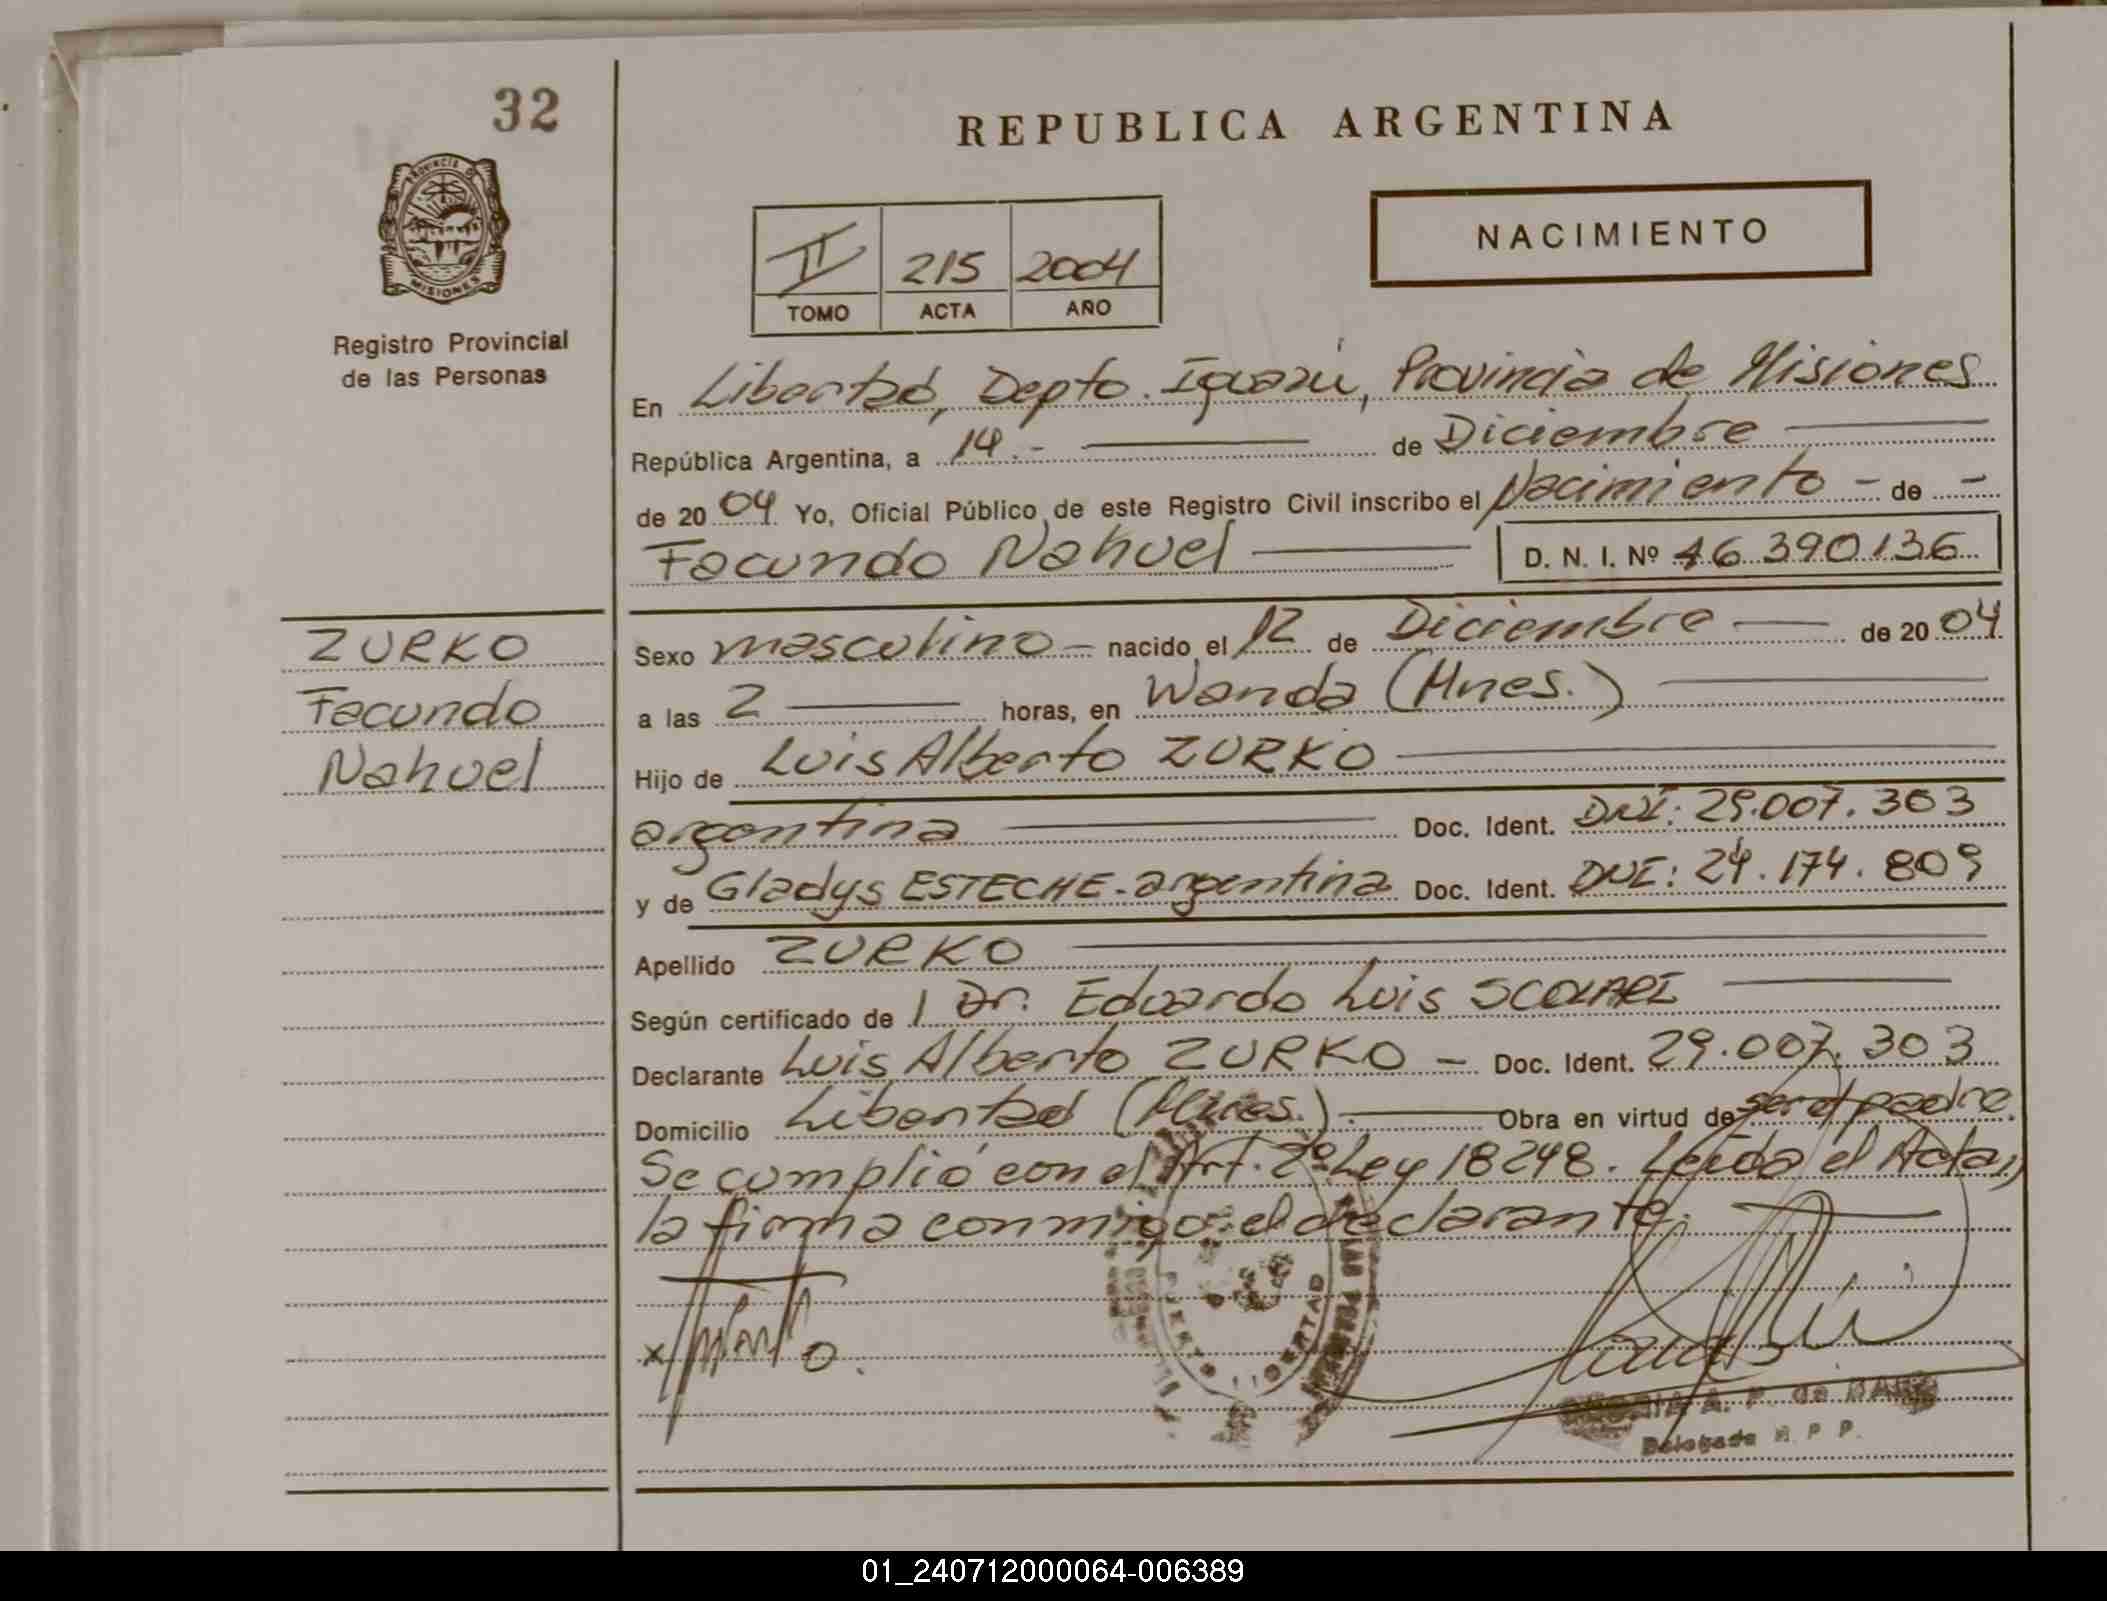 32
REPUBLICA ARGENTINA
PROVINCIA DE
MISIONES
NACIMIENTO
II 215 2004
TOMO ACTA AÑO
Registro Provincial
de las Personas
En Libertad, Depto. Iguazú, Provincia de Misiones
República Argentina, a 14.- de Diciembre
de 2004 Yo, Oficial Público de este Registro Civil inscribo el Nacimiento - de -
Facundo Nahuel D. N. I. Nº 46 390136
ZURKO
Facundo
Nahuel
Sexo masculino - nacido el 12 de Diciembre de 2004
a las 2 horas, en Wanda (Mnes.)
Hijo de Luis Alberto ZURKO
argentina Doc. Ident. DNI: 29.007.303
y de Gladys ESTECHE - argentina Doc. Ident. DNI: 24.174.809
Apellido ZURKO
Según certificado de Dr. Eduardo Luis SCOLARI
Declarante Luis Alberto ZURKO - Doc. Ident. 29.007.303
Domicilio Libertad (Mnes.) Obra en virtud de ser el padre.
Se cumplió con el Art. 2º Ley 18248. Leída el Acta,
la firma conmigo el declarante.
PUERTO LIBERTAD
A. P. de
Delegada R. P. P.
01_240712000064-006389